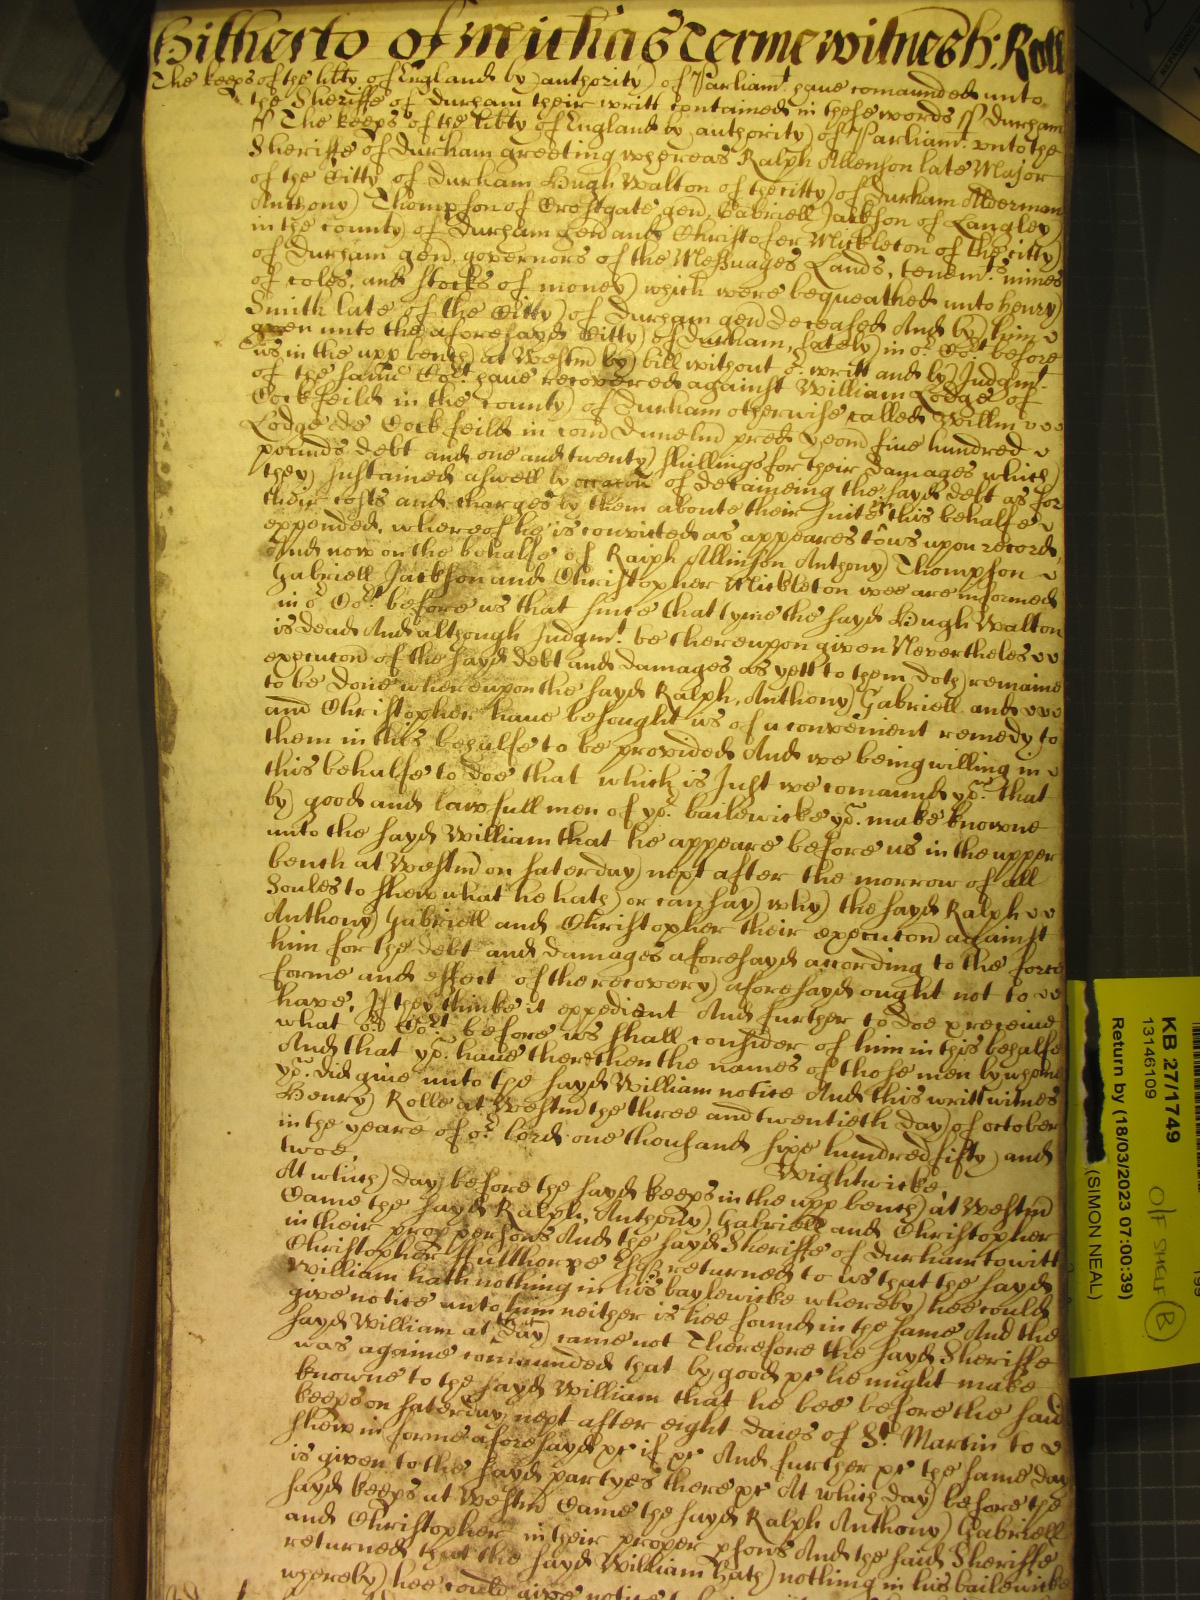 Hitherto of Michas Terme witnesh: Roll
The keeps of the libty of England by authority of Parliamt. have comaunded unto
the Sheriffe of Durham their writt contained in these words ss Durham
ss The keeps of the libty of England by authority of Parliamt. unto the
Sheriffe of Durham greeting whereas Ralph Allenson late Major
of the Citty of Durham Hugh Walton of the citty of Durham Alderman
Anthony Thompson of Crosgate gen. Gabriell Jackson of Langley
in the county of Durham gen and Christofer Mickleton of the citty
of Durham gen. governors of the Messuages Lands, tenemts. mines
of coles, and stocks of money which were bequeathed unto Henry
Smith late of the Citty of Durham gen deceased And by him
given unto the aforesayd Citty of Durham, lately in or. Cort. before
us in the upp bench at Westm by bill without or. writt and by Judgmt.
of the same Cort. have recovered against William Lodge of
Cockfeild in the county of Durham otherwise called Willm
Lodge de Cockfeild in com Dunelm pred yeom five hundred
pounds debt and one and twenty shillings for their damages which
they sustained aswell by occacon of detaineing the sayd debt as for
their costs and charges by them aboute their suite in this behalfe
expended, whereof he is convicted as appeares to us upon record
And now on the behalfe of Ralph Allinson Anthony Thompson
Gabriell Jackson and Christopher Mickleton wee are informed
in or. Cort. before us that since that tyme the sayd Hugh Walton
is dead And although Judgmt. be thereupon given Nevertheles
execucon of the sayd debt and damages as yett to them doth remaine
to be done whereupon the sayd Ralph, Anthony Gabriell and
and Christopher have besought us of a convenient remedy to
them in this behalfe to be provided And we being willing in
this behalfe to doe that which is Just we comaund yo. that
by good and lawfull men of yor. bailewicke yo. make knowne
unto the sayd William that he appeare before us in the upper
bench at Westm on Saterday next after the morrow of all
Soules to shew what he hath or can say why the sayd Ralph
Anthony Gabriell and Christopher their execucon against
him for the debt and damages aforesayd according to the force
forme and effect of the recovery aforesayd ought not to
have, If they thinke it expedient And further to doe & receive
what or. Cort. before us shall consider of him in this behalfe
And that yo. have there then the names of those men by whom
yo. did give unto the sayd William notice And this writt witnes
Henry Rolle at Westm the three and twentieth day of October
in the yeare of or. Lord one thousand sixe hundred fifty and
twoe,
Wightwicke
At which day before the sayd keeps in the upp bench at Westm
Came the sayd Ralph, Anthony Gabriell and Christopher
in their prop persons And the sayd Sheriffe of Durham towitt
Christopher Fulthorpe Esqr returned to us that the sayd
William hath nothing in his baylewicke whereby hee could
give notice unto him neither is hee found in the same And the
sayd William at that day came not Therefore the sayd Sheriffe
was againe comaunded that by good &c he might make
knowne to the sayd William that he bee before the said
keeps on Saterday next after eight daies of St. Martin to
shew in forme aforesayd &c if &c And further &c the same day
is given to the sayd partyes there &c At which day before the
sayd keeps at Westm Came the sayd Ralph Anthony Gabriell
and Christopher in their proper psons And the said Sheriffe
returned that the sayd William hath nothing in his bailewicke
whereby hee could give notice
KB 27/1749
13146109
Return by (18/03/2023 07:00:39)
(SIMON NEAL)
O/F SHELF B